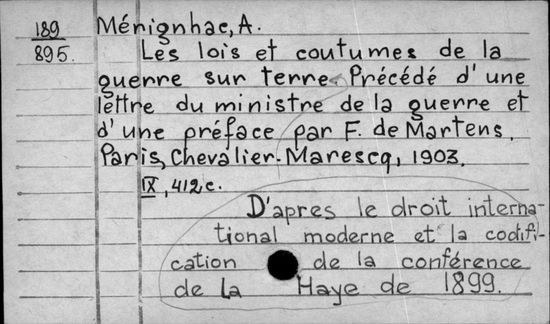 189
895.
Ménignhac, A.
Les lois et coutumes de la
guerre sur terre. Précédé d'une
lettre du ministre de la guerre et
d'une préface par F. de Martens.
Paris, Chevalier-Marescq, 1903.
IX, 412 c.
D'apres le droit interna-
tional moderne et la codifi-
cation de la conférence
de La Haye de 1899.